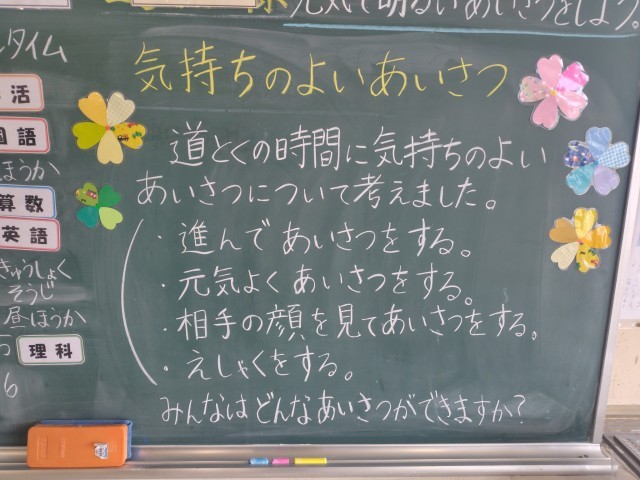 元気で明るいあいさつをしよう。
気持ちのよいあいさつ
道とくの時間に気持ちのよい
あいさつについて考えました。
・進んであいさつをする。
・元気よくあいさつをする。
・相手の顔を見てあいさつをする。
・えしゃくをする。
みんなはどんなあいさつができますか?
ルタイム
活
国語
ほうか
算数
英語
きゅうしょく
そうじ
昼ほうか
5 理科
6